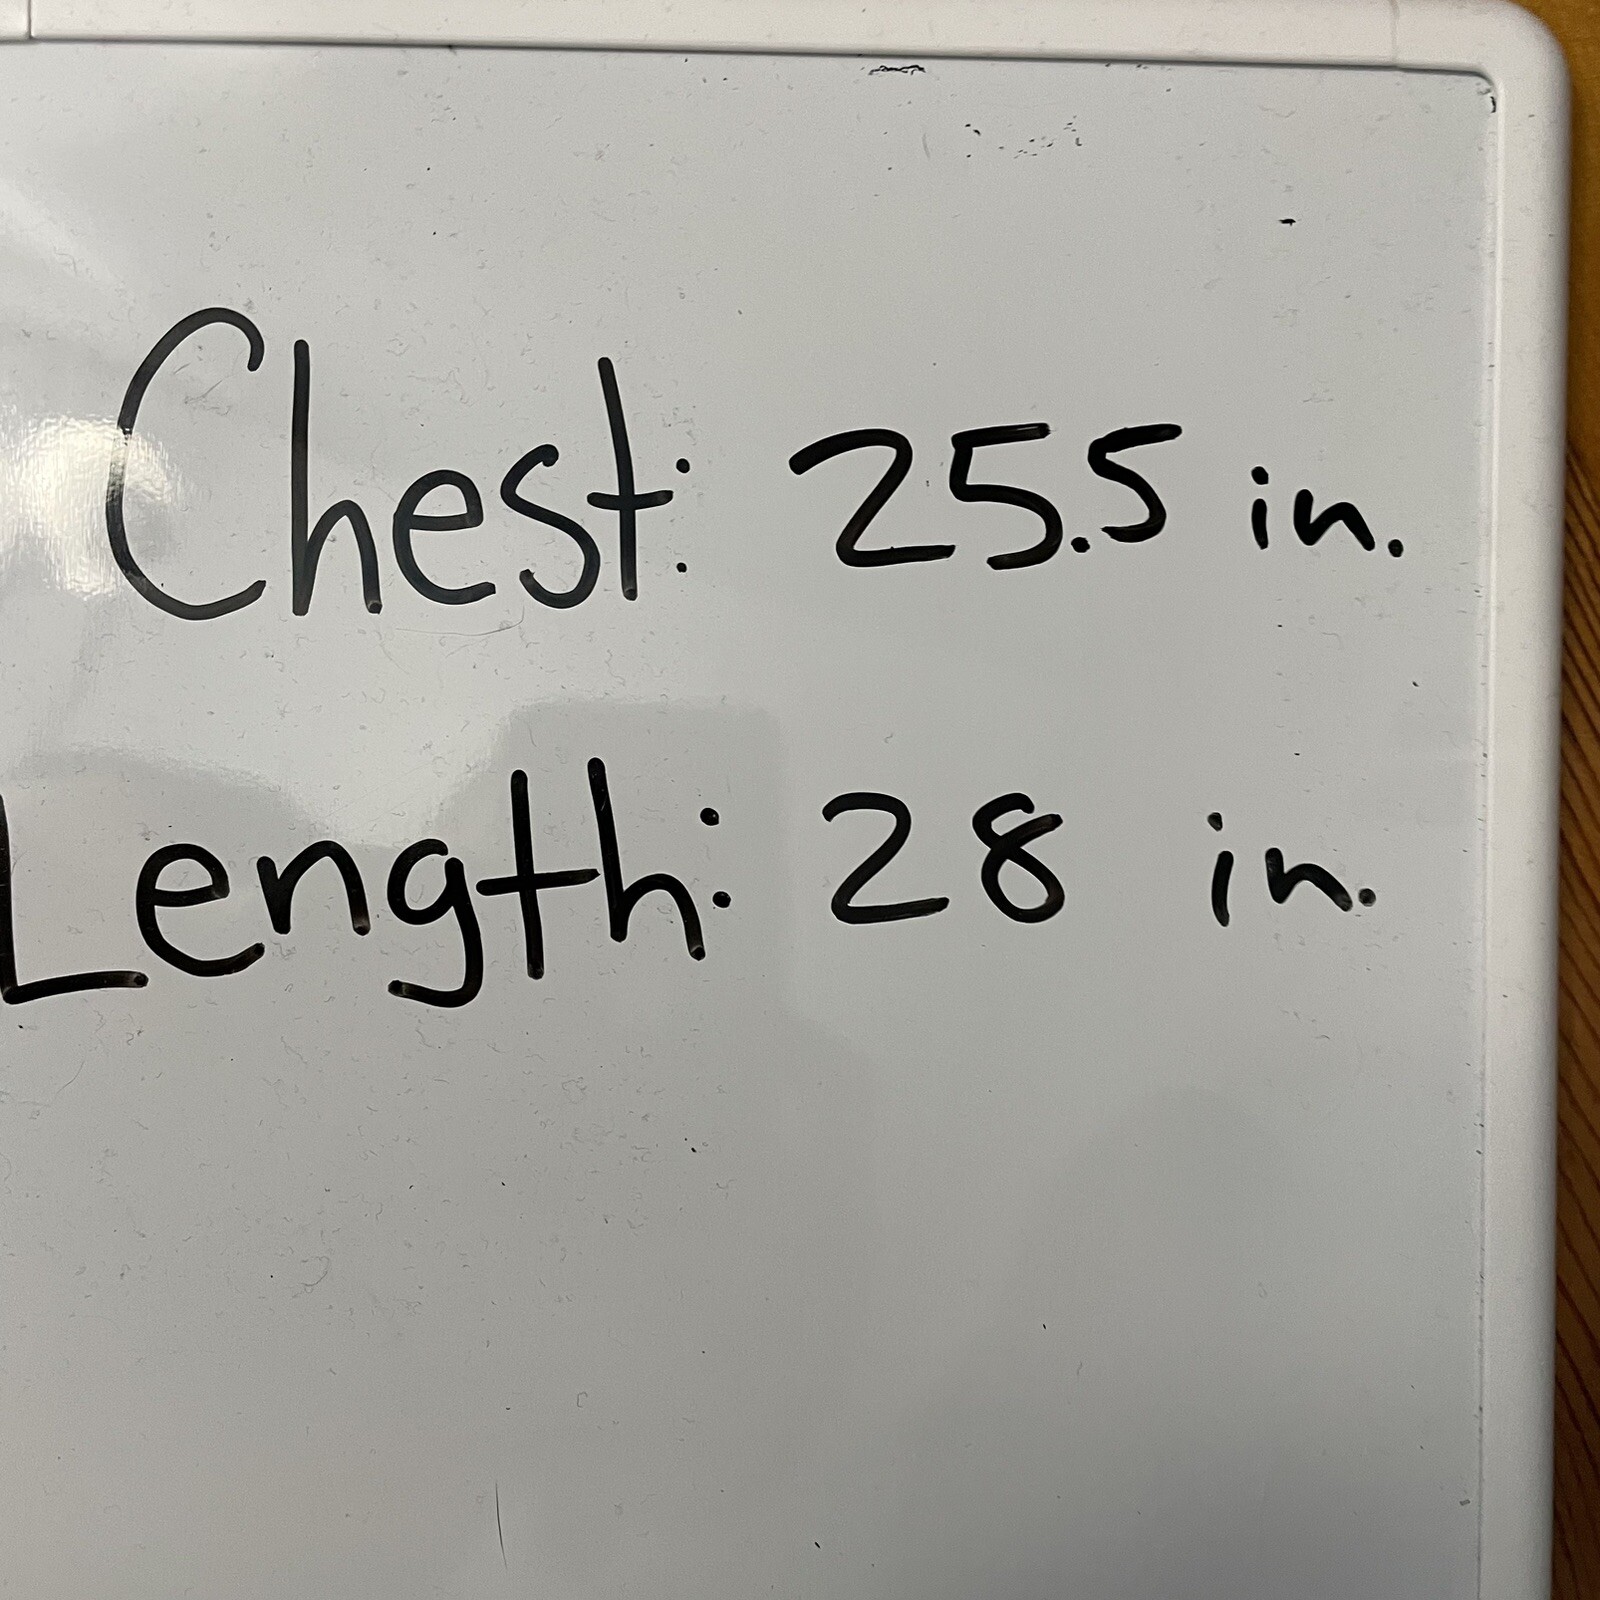 Chest: 25.5 in.
Length: 28 in.